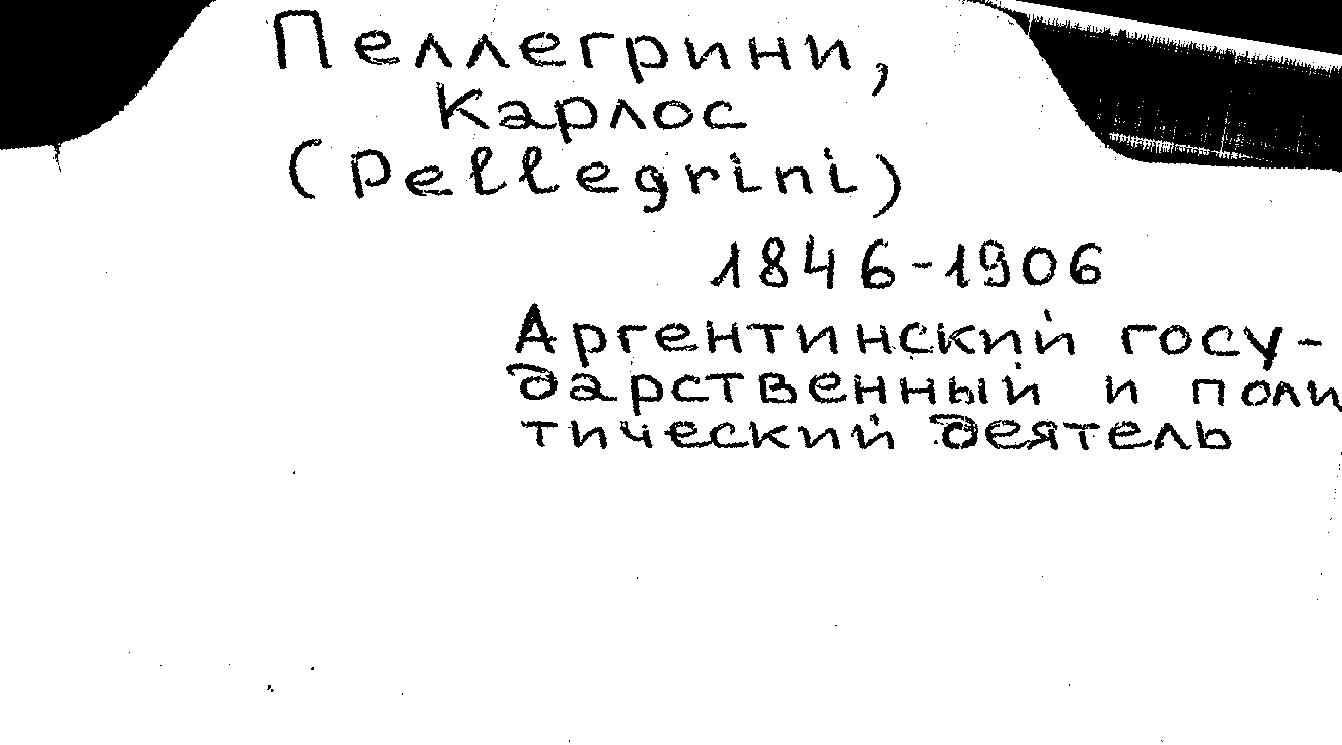 Пеллегрини,
Карлос
(Pellegrini)
1846-1906
Аргентинский госу-
дарственный и поли
тический деятель